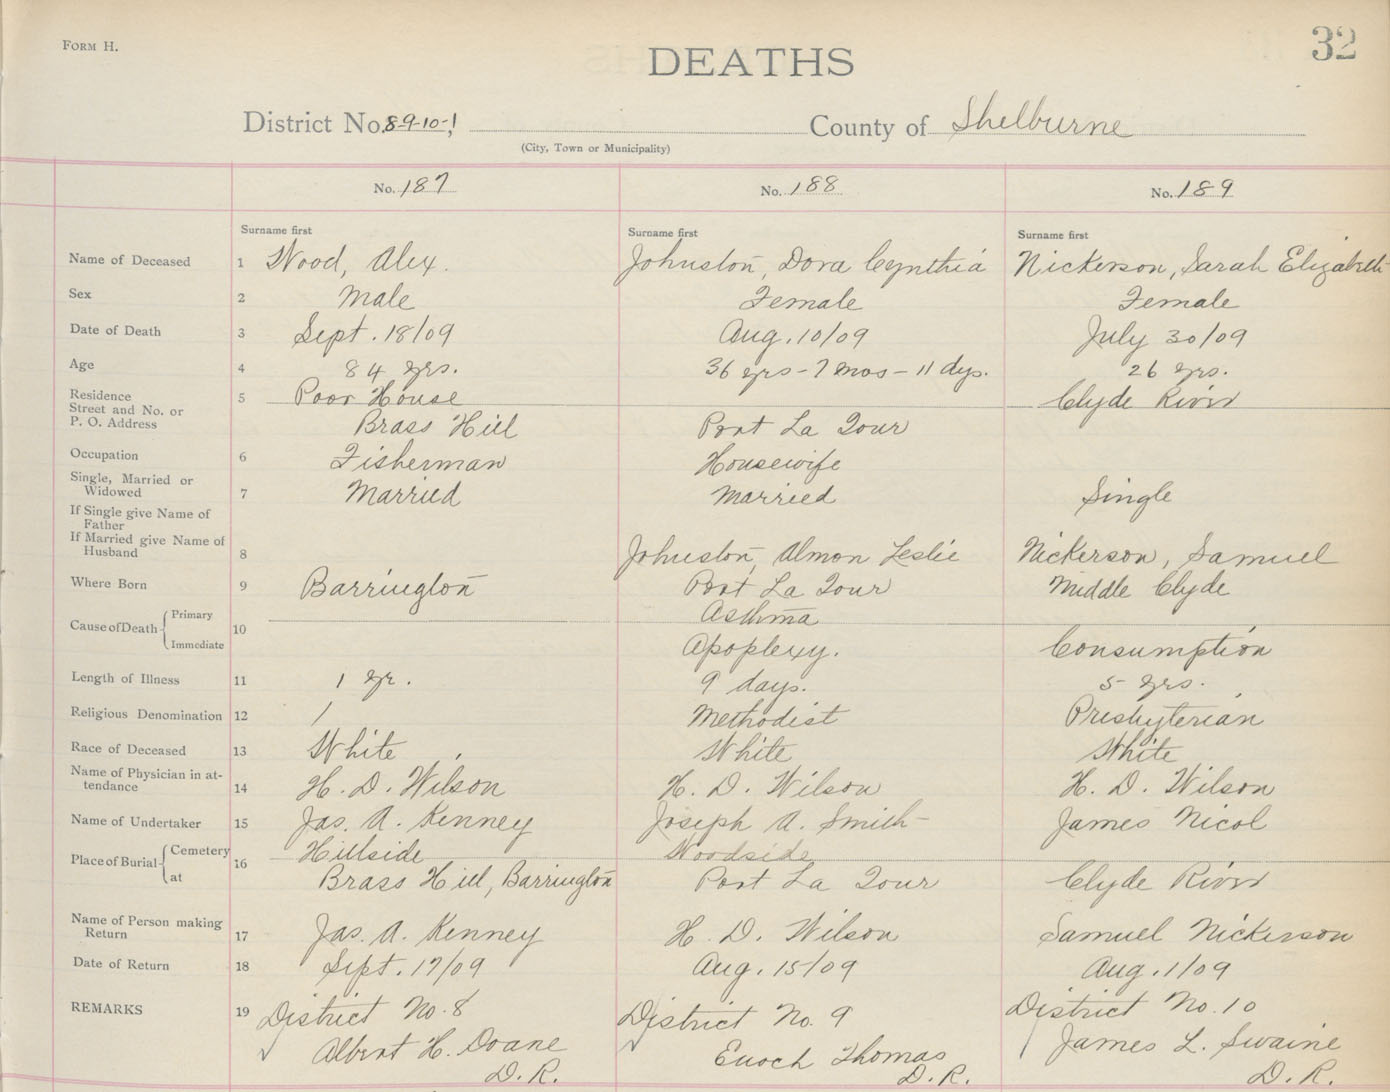 FORM H.
32
DEATHS
District No. 8-9-10-1 County of Shelburne
(City, Town or Municipality)
No. 187 No. 188 No. 189
Surname first Surname first Surname first
Name of Deceased 1 Wood, Alex. Johnston, Dora Cynthia Nickerson, Sarah Elizabeth
Sex 2 Male Female Female
Date of Death 3 Sept. 18/09 Aug. 10/09 July 30/09
Age 4 84 yrs. 36 yrs - 7 mos - 11 dys. 26 yrs.
Residence 5 Poor House Clyde River
Street and No. or
P. O. Address Brass Hill Port La Tour
Occupation 6 Fisherman Housewife
Single, Married or
Widowed 7 Married Married Single
If Single give Name of
Father
If Married give Name of
Husband 8 Johnston, Almon Leslie Nickerson, Samuel
Where Born 9 Barrington Port La Tour Middle Clyde
Cause of Death Primary 10 Asthma
Immediate Apoplexy. Consumption
Length of Illness 11 1 yr. 9 days. 5 yrs.
Religious Denomination 12 / Methodist Presbyterian
Race of Deceased 13 White White White
Name of Physician in at-
tendance 14 H. D. Wilson H. D. Wilson H. D. Wilson
Name of Undertaker 15 Jas. A. Kenney Joseph A. Smith James Nicol
Place of Burial Cemetery 16 Hillside Woodside
at Brass Hill, Barrington Port La Tour Clyde River
Name of Person making
Return 17 Jas. A. Kenney H. D. Wilson Samuel Nickerson
Date of Return 18 Sept. 17/09 Aug. 15/09 Aug. 1/09
REMARKS 19 District No. 8 District No. 9 District No. 10
Albert H. Doane Enoch Thomas James L. Swaine
D. R. D. R. D. R.